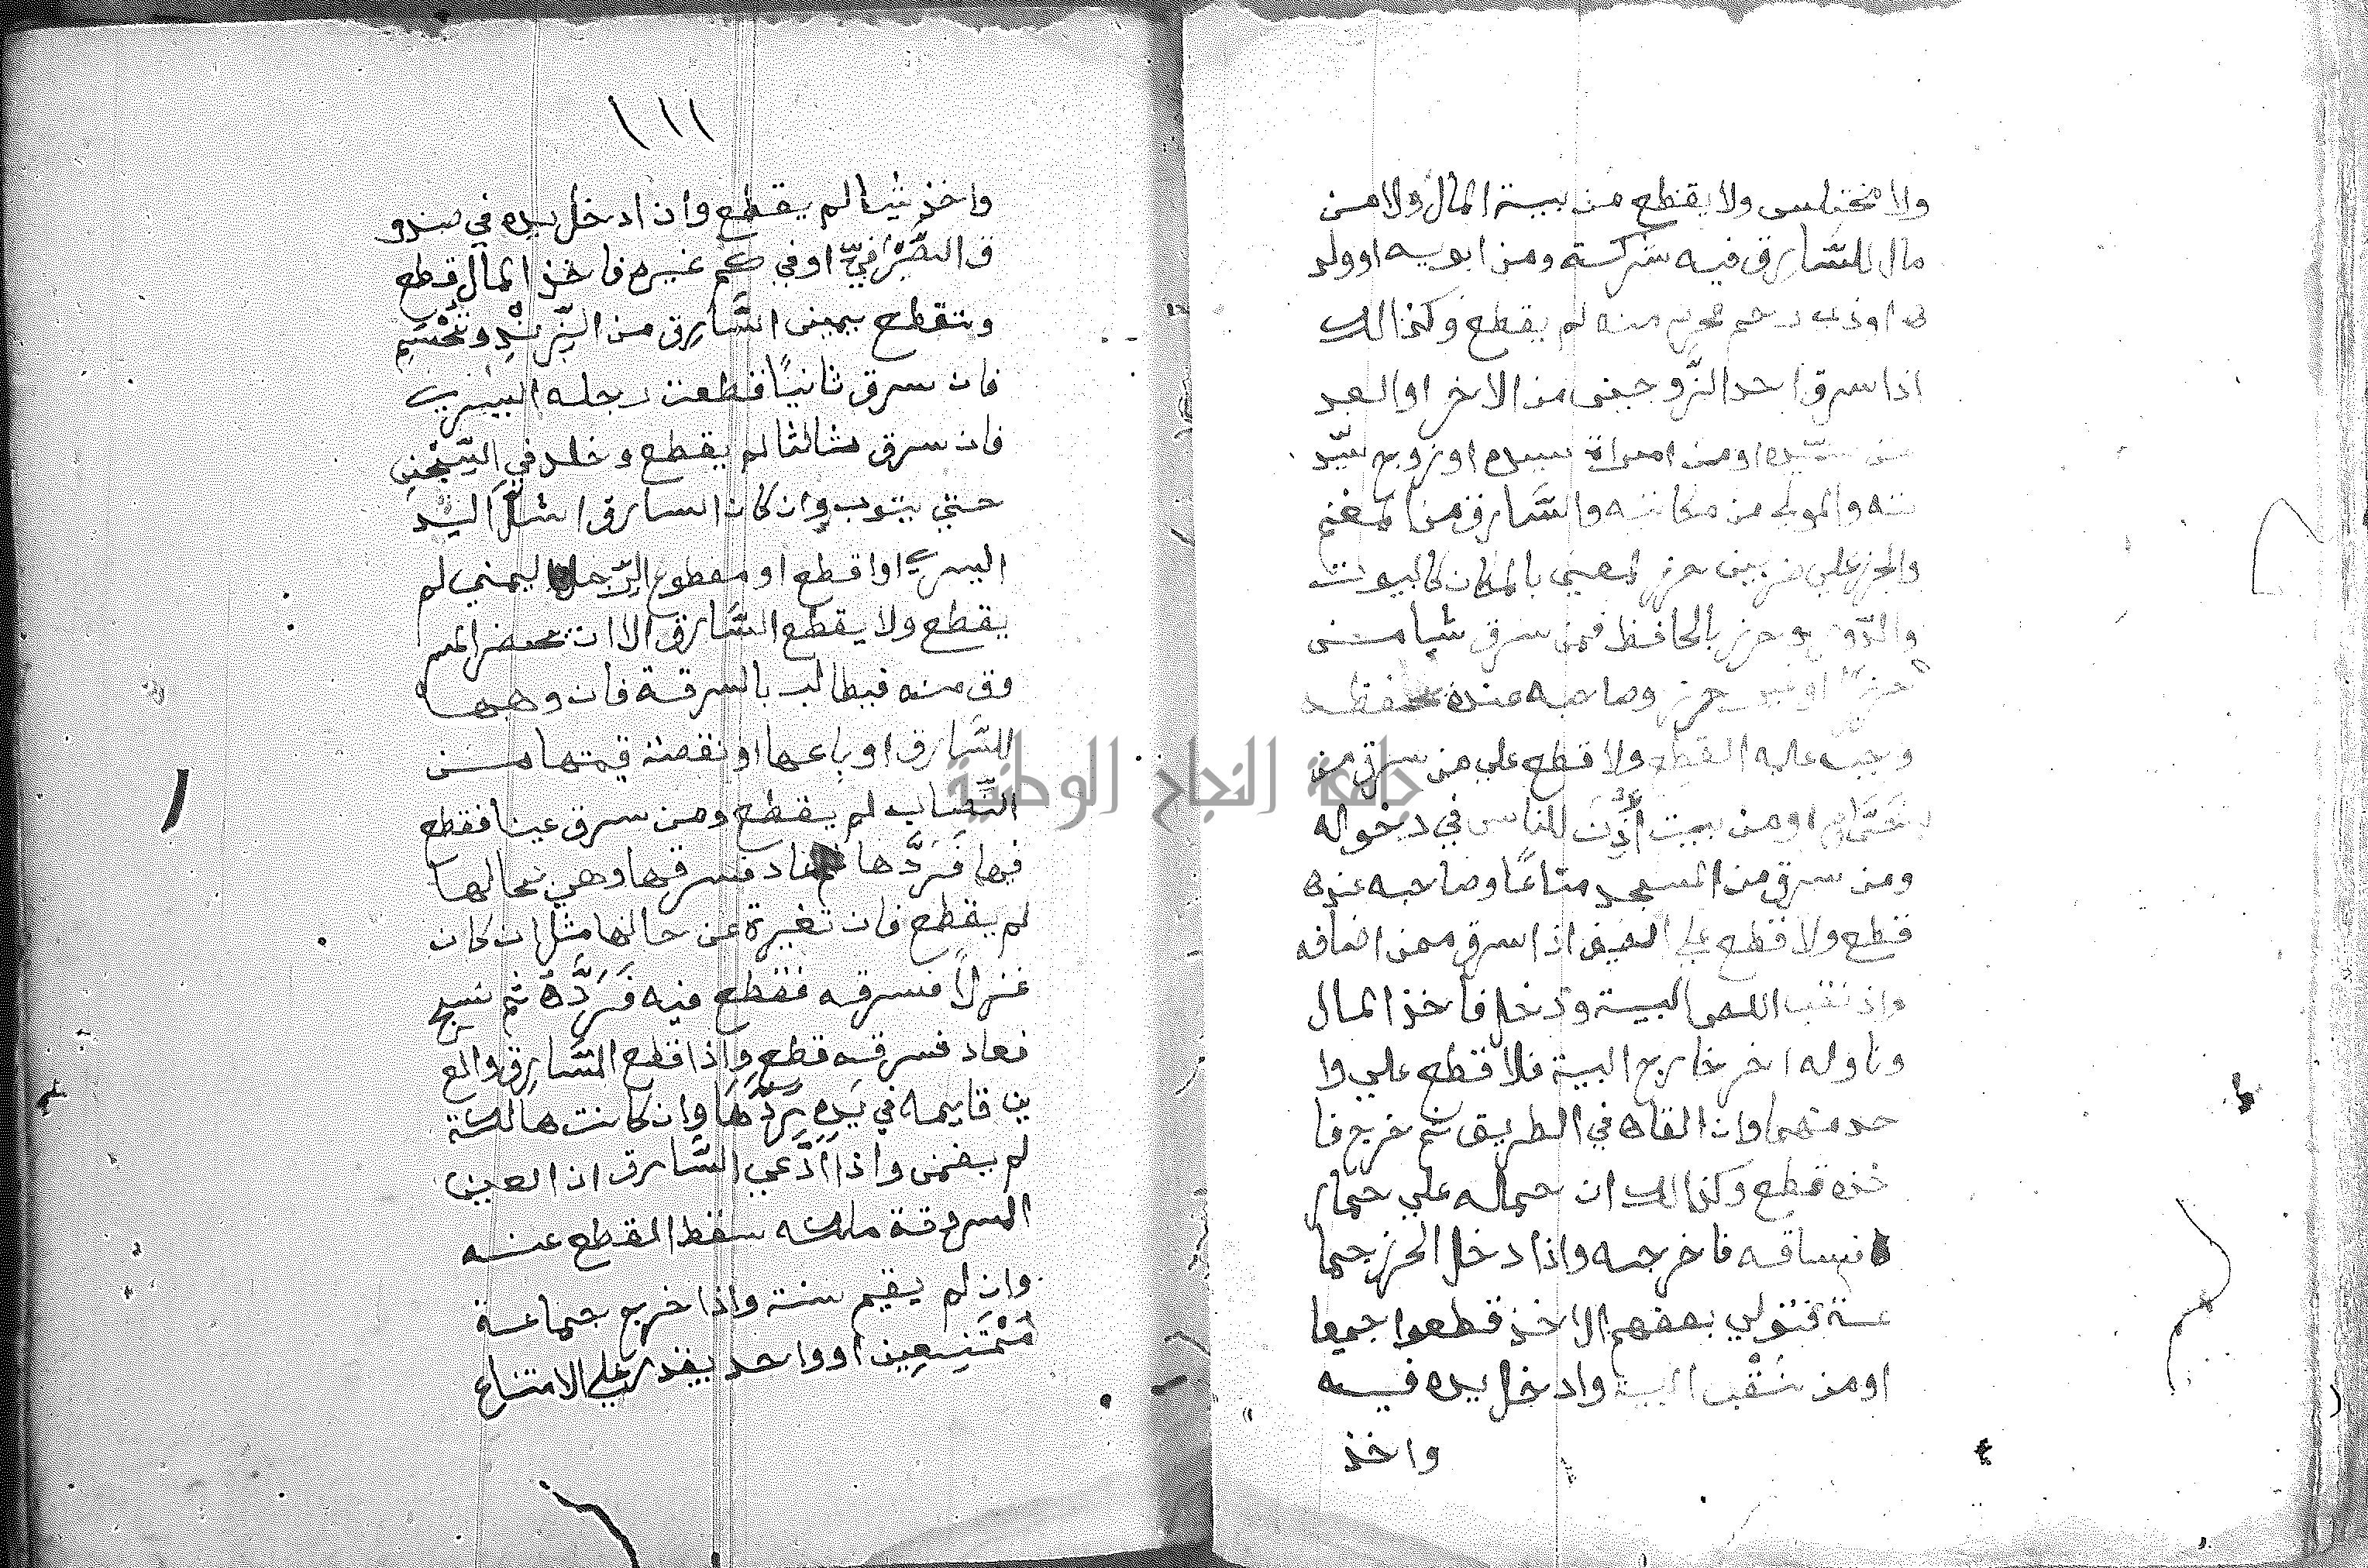 ولا مختلس ولا يقطع من بيت المال ولا من
مال للسَّارق فيه شركة ومن ابويه او ولد
ه او ذي رحم محرم منه لم يقطع وكذالك
اذا سرق احد الزَّوجين من الاخر او العبد
من سيّده او من امراة سيده او زوج سيّد
ته والمولي من مكاتبه والسَّارق من المغنم
والحرز علي ضربين حرز لمعني بالمكان كالبيوت
والدّور وحرز بالحافظ فمن سرق شيا من
حرز او غير حرز وصاحبه عنده يحفظه
وجب عليه القطع ولا قطع علي من سرق من
حَمَّام او من بيت اُذِنَ للناس في دخوله
ومن سرق من المسجد متاعًا وصاحبه عنده
قطع ولا قطع علي الضيف اذا سرق ممن اضافه
واذ نقب اللص البيت ودخل فاخذ المال
وناوله اخر خارج البيت فلا قطع علي وا
حد منهما وان القاه في الطريق ثم خرج فا
خذه قطع وكذالك ان حمله علي حمار
فساقه فاخرجه واذا دخل الحرز جما
عة فتولي بعضهم الاخذ قطعوا جميعا
او من نَقْب البيت وادخل يده فيه
واخذ
١١١
واخذ شيا لم يقطع وان ادخل يده في صندو
ق الصَّيْرفيّ او في كم غيره فاخذ المال قطع
وتقطع يمين السَّارق من الزّنْدِ وتُحْسَم
فان سرق ثانيًا قطعت رجله اليسري
فان سرق ثالثا لم يقطع وخلد في السّجْن
حتي يتوب وان كان السارق اشلّ اليد
اليسري او اقطع او مقطوع الرّجل اليمني لم
يقطع ولا يقطع السَّارق الا ان يحضر المسر
وق منه فيطالب بالسرقة فان وهبها
للسَّارق او باعها او نقصة قيمتها من
النّصاب لم يقطع ومن سرق عينا فقطع
فيها فَرَدَّها فعاد فسرقها وهي بحالها
لم يقطع فان تغيرة عن حالها مثل ان كان
غزلًا فسرقه فقطع فيه فَرَدَّهُ ثم نسج
فعاد فسرقه قطع واذا قطع السَّارق والع
ين قايمه في يَدِهِ رَدَّهَا وان كانت هالكة
لم يضمن واذا ادَّعي السَّارق ان العين
المسروقة ملكه سقط القطع عنه
وان لم يقيم بينة واذا خرج جماعة
مُمْتَنِعِين او واحد يقدر علي الامتناع